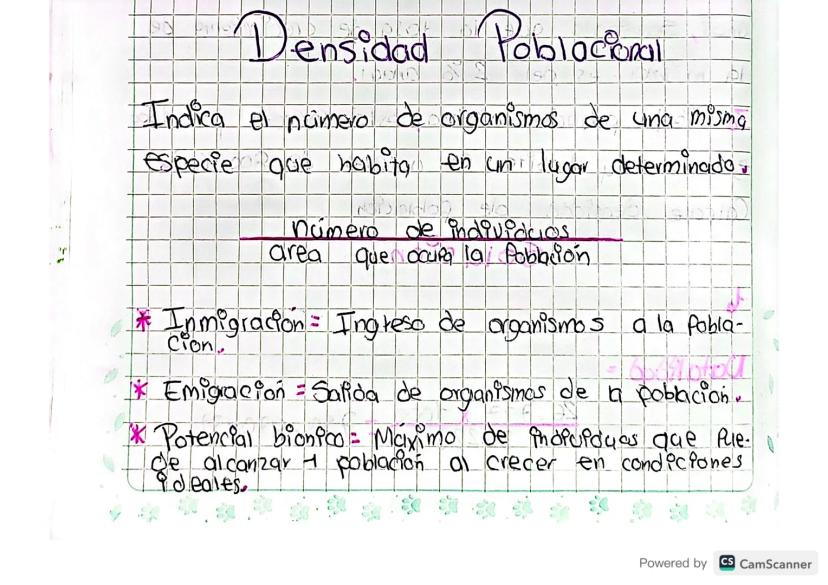 Densidad Poblacional
Indica el número de organismos de una misma
especie que habita en un lugar determinado.
número de individuos
area que ocupa la población
* Inmigración = Ingreso de organismos a la pobla-
ción.
* Emigración = Salida de organismos de la población.
* Potencial bionico = Máximo de individuos que pue-
de alcanzar 1 población al crecer en condiciones
ideales.
Powered by CS CamScanner